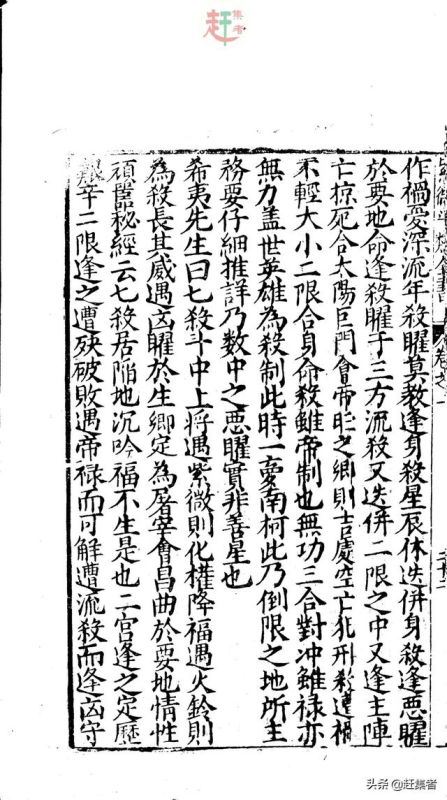 赶集者
作禍愛深流年殺曜莫教逢身殺星辰休迭併身殺逢惡曜
於要地命逢殺曜于三方流殺又迭併二限之中又逢主陣
亡掠死合太陽巨門會帝旺之鄉則吉處空亡犯刑殺遭禍
不輕大小二限合身命殺雖帝制也無功三合對冲雖禄亦
無力盖世英雄為殺制此時一夢南柯此乃倒限之地所主
務要仔細推詳乃数中之惡曜實非善星也
希夷先生曰七殺斗中上將遇紫微則化權降福遇火鈴則
為殺長其威遇凶曜於生鄉定為屠宰會昌曲於要地情性
頑嚚秘經云七殺居陷地沉吟福不生是也二宮逢之定歷
艱辛二限逢之遭殃破敗遇帝禄而可解遭流殺而逢凶守
头条@赶集者